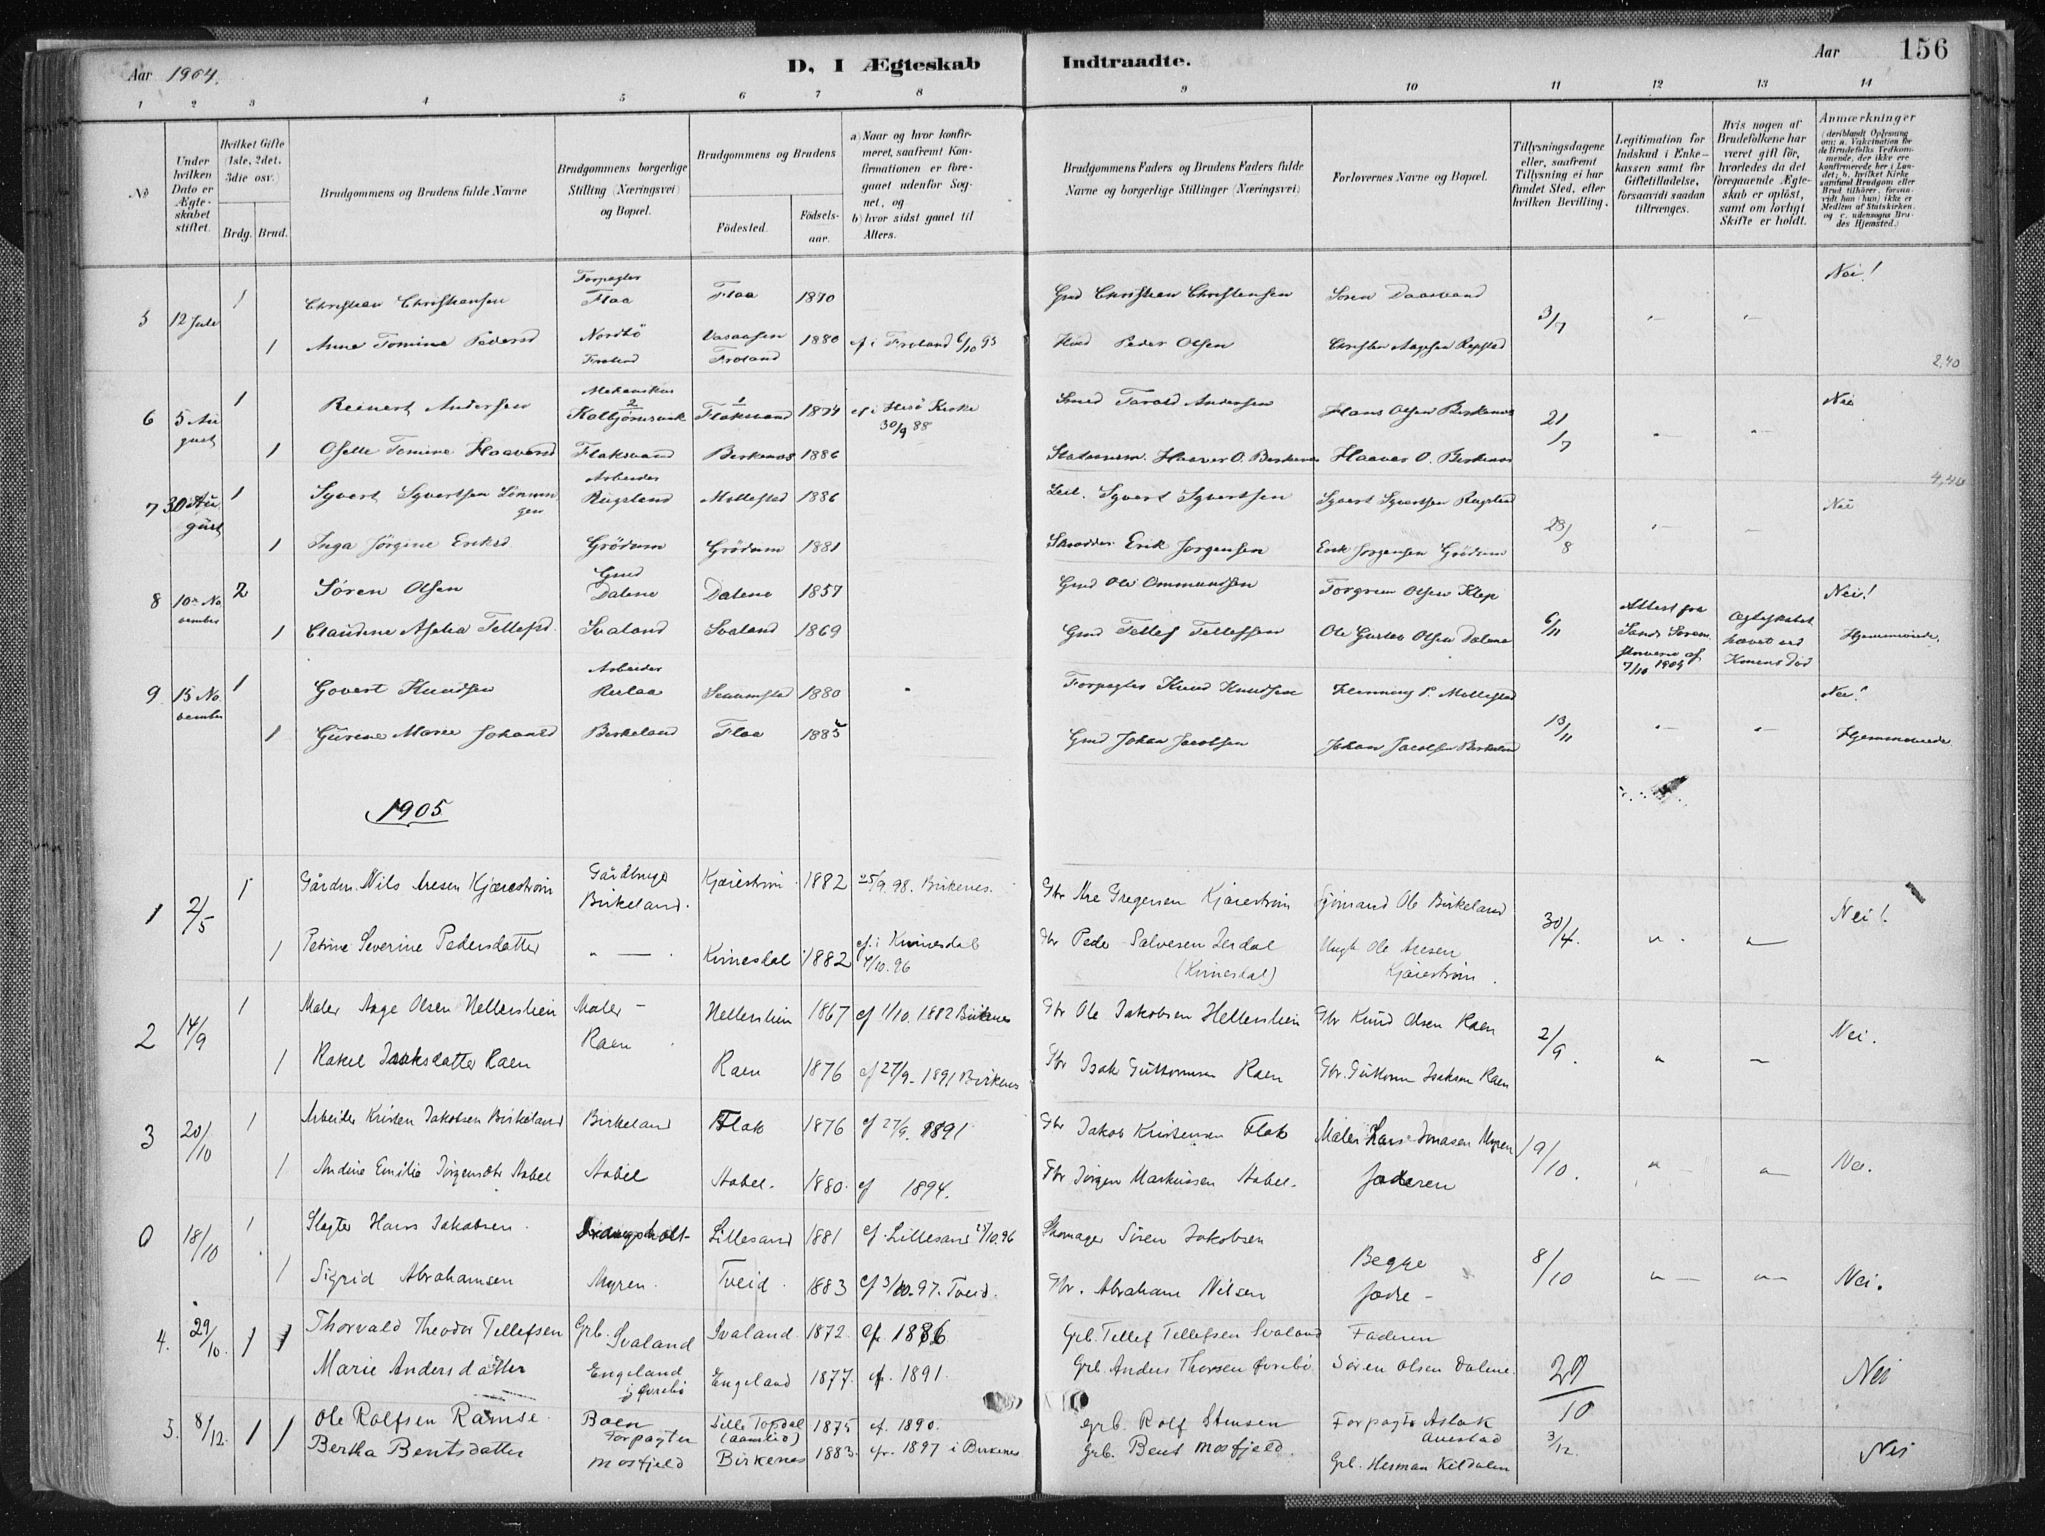 Aar 1904.
D, I Ægteskab Indtraadte.
Aar
156
1 2 3 4 5 6 7 8 9 10 11 12 13 14
No
Under hvilken Dato er Ægteskabet stiftet.
Hvilket Gifte (1ste, 2det, 3die osv.)
Brdg. Brud.
Brudgommens og Brudens fulde Navne
Brudgommens borgerlige Stilling (Næringsvei) og Bopæl.
Brudgommens og Brudens
Fødested.
Fødsels-aar.
a) Naar og hvor konfirmeret, saafremt Konfirmationen er foregaaet udenfor Sognet, og
b) hvor sidst gaaet til Alters.
Brudgommens Faders og Brudens Faders fulde Navne og borgerlige Stillinger (Næringsvei)
Forlovernes Navne og Bopæl.
Tillysningsdagene eller, saafremt Tillysning ei har fundet Sted, efter hvilken Bevilling.
Legitimation for Indskud i Enkekassen samt for Giftetilladelse, forsaavidt saadan tiltrænges.
Hvis nogen af Brudefolkene har været gift før, hvorledes da det foregaaende Ægteskab er opløst, samt om lovligt Skifte er holdt.
Anmærkninger
5 12 Juli 1 Christian Christiansen Forpagter Flaa Flaa 1870 Gmd Christian Christensen Søren Daasvand 3/7 Nei!
1 Anne Tomine Pedersd Nordbö Froland Vasaasen Froland 1880 cf i Froland 6/10 95 Peder Olsen
2,40
6 5 August 1 Reinert Andersen 2 1 Flaksvand 1874 cf i Hisø Kirke 30/9 88 Smed Tarald Andersen Hans Olsen Birkenes 21/7 Nei
1 Oselle Tomine Haaversd Flaksvand Birkenes 1886 Haaver O. Birkenes Haaver O. Birkenes
4,40
7 30 August 1 Syvert Syvertsen Arbeider Rugsland Mollestad 1886 Syvert Syvertsen 28/8 Nei
1 Inga Jörgine Eriksd Grödum Grödum 1881 Erik Jørgensen Erik Jørgensen Grödum
8 10de November 2 Søren Olsen Gmd Dalene Dalene 1857 Gmd Ole Ommundsen Torgrim Olsen Klep 6/11 Attest fra Nei!
1 Claudine Aselia Tellefsd Svaland Svaland 1869 Gmd Tellef Tellefsen Ole Gustav Olsen Dalene 7/10 1903 Ægteskabet hævet ved Konens Død Hjemmeviede.
9 15 November 1 Govert Knudsen Arbeider 1880 Forpagter Knud Knudsen Flemming P. Mollestad 13/11 Nei!
1 Gurine Marie Johansd Birkeland Flaa 1885 Gmd Johan Jacobsen Johan Jacobsen Birkeland Hjemmeviede
1905
1 2/5 1 Gårdbr. Nils Aresen Kjærestrøm Gårdbruger Birkeland. Kjærestrøm 1882 25/9. 98. Birkenes. Gbr Are Gregersen Kjærestrøm Sjømand Ole Birkeland 30/4. Nei!
1 Petrine Severine Pedersdatter Kvinesdal 1882 cf. i Kvinesdal 4/10. 96 Gbr Peder Salvesen (Kvinesdal) Ungk Ole Aresen Kjærestrøm.
2 14/9 1 Maler Aage Olsen Hellerslien Maler Raen Hellerslien 1867 cf 1/10. 1882 Birkenes Gbr Ole Jakobsen Hellerslien Gbr Knud Olsen Raen 2/9. Nei.
1 Rakel Isaksdatter Raen Raen 1876 cf 27/9 - 1891 Birkenes Gbr Isak Guttormsen Raen Gbr. Guttorm Isaksen Raen
3 20/10 1 Arbeider Kristen Jakobsen Birkeland Birkeland Flak 1876 cf 27/9. 1891 Gbr Jakob Kristensen Flak Maler Hans Jonasen Myren 19/10. Nei.
1 Andine Emilie Jörgensdtr Aabel Aabel Aabel. 1880. cf 1894. Gbr Jörgen Markussen Aabel. Faderen
0 18/10 1 Slagter Hans Jakobsen Lillesand 1881 cf. Lillesand /10.96 Skomager Sören Jakobsen Begge Fædre - 8/10 Nei.
1 Sigrid Abrahamsen Myren. Tveid. 1883 cf 3/10. 97. Tveid. Gbr. Abraham Nilsen
4. 29/10. 1 1 Thorvald Theodor Tellefsen Grb. Svaland Svaland 1872. cf. 1886 Grb. Tellef Tellefsen Svaland Faderen 29/10 Nei
Marie Andersdatter Engeland i Øvrebö Engeland 1877. cf. 1891. Grb. Anders Thorsen Øvrebö Søren Olsen Dalene
5. 8/12. 1 1 Ole Rolfsen Ramse. Boen Forpagter Lille Topdal (Aamlid) 1875 cf. 1890. Grb. Rolf Stensen Forpagter Aslak Avestad 3/12. Nei
Bertha Bentsdatter Mosfjeld Birkenes 1883. cf. 1897 i Birkenes Grb. Bent Mosfjeld. Grb. Herman Kildalen